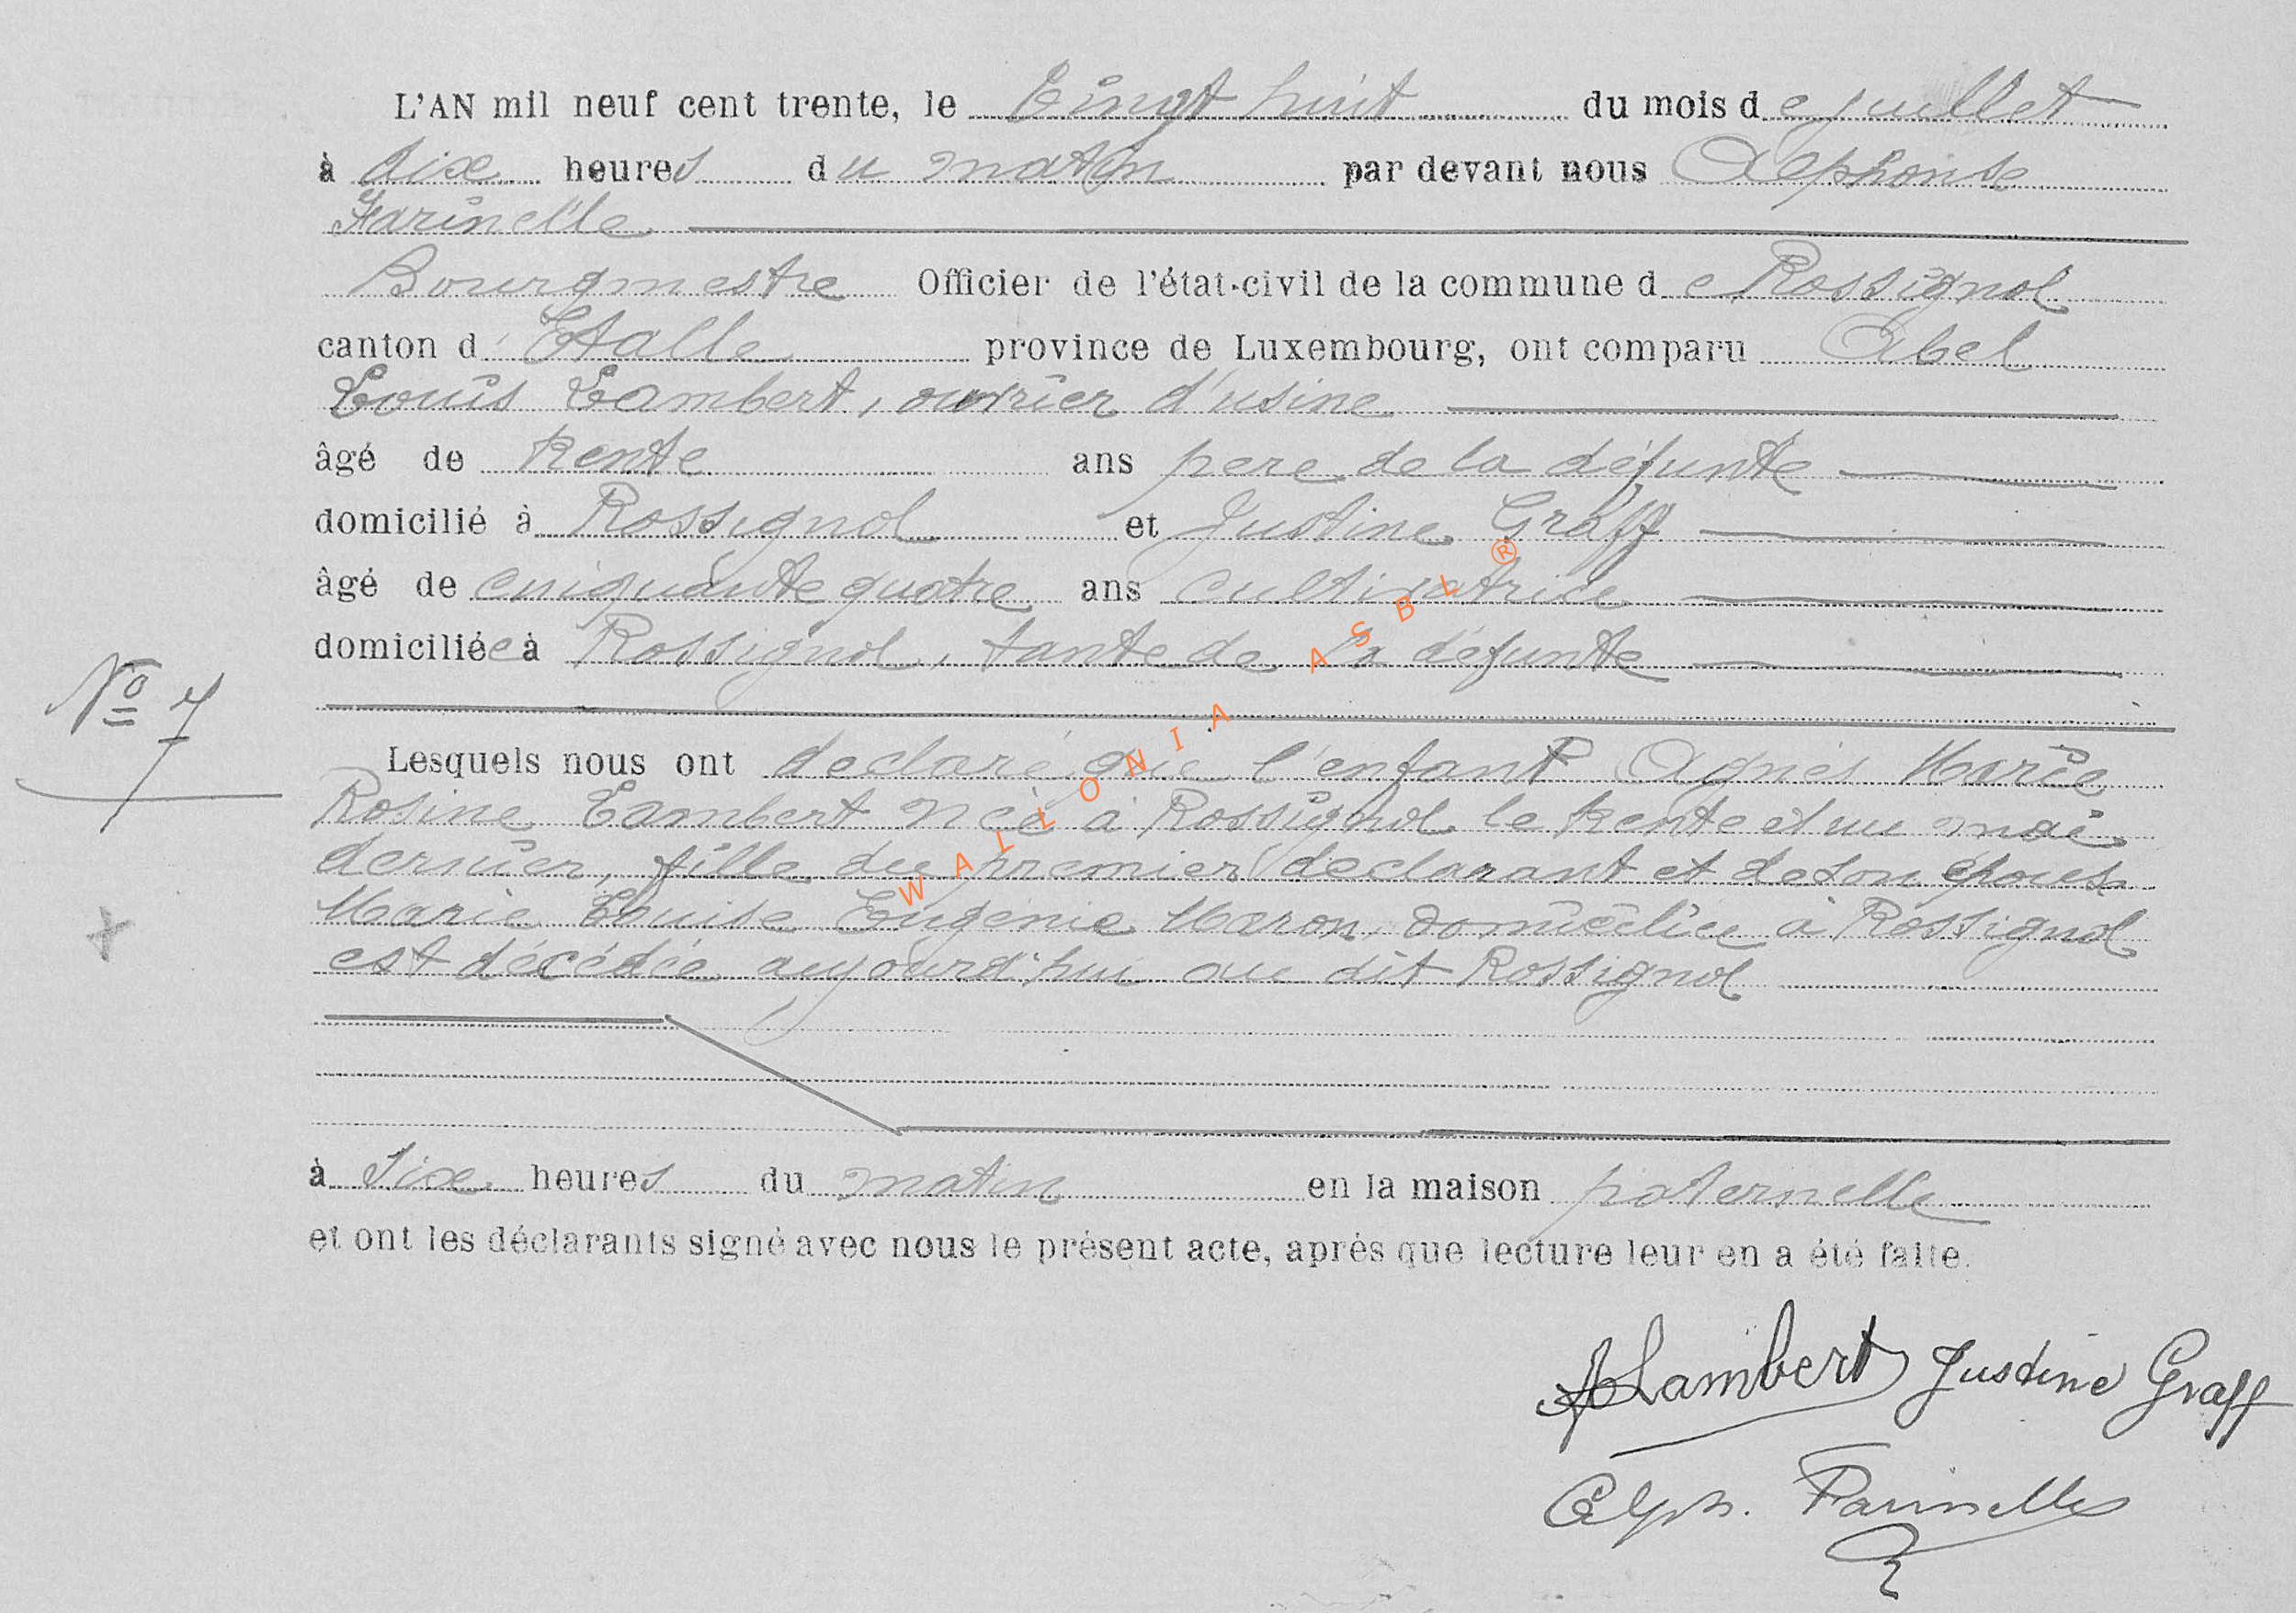 L'AN mil neuf cent trente, le Vingt huit du mois de juillet
à dix heures du matin par devant nous Alphonse
Farinelle
Bourgmestre Officier de l'état-civil de la commune de Rossignol
canton d'Etalle province de Luxembourg, ont comparu Abel
Louis Lambert, ouvrier d'usine
âgé de trente ans père de la défunte
domicilié à Rossignol et Justine Graff
âgé de cinquante quatre ans cultivatrice
domiciliée à Rossignol, tante de la défunte
N° 7
Lesquels nous ont declaré que l'enfant Agnès Marie
Rosine Lambert née à Rossignol le trente et un mai
dernier, fille du premier declarant et de son épouse
Marie Louise Eugénie Maron, domiciliée à Rossignol
est décédée aujourd'hui au dit Rossignol
à six heures du matin en la maison paternelle
et ont les déclarants signé avec nous le présent acte, après que lecture leur en a été faite.
ALambert Justine Graff
Alph. Farinelle
WALLONIA ASBL ®